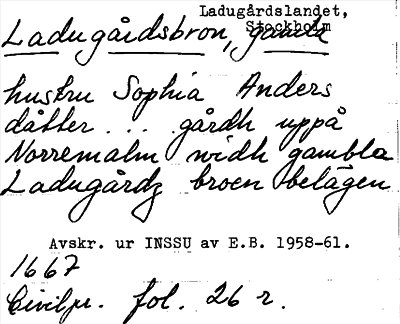 Ladugårdslandet,
Stockholm
Ladugårdsbron, gamla
hustru Sophia Anders
dåtter ... gårdh uppå
Norremalm widh gambla
Ladugårdz broen belägen
Avskr. ur INSSU av E.B. 1958-61.
1667
Civilpr. fol. 26 r.